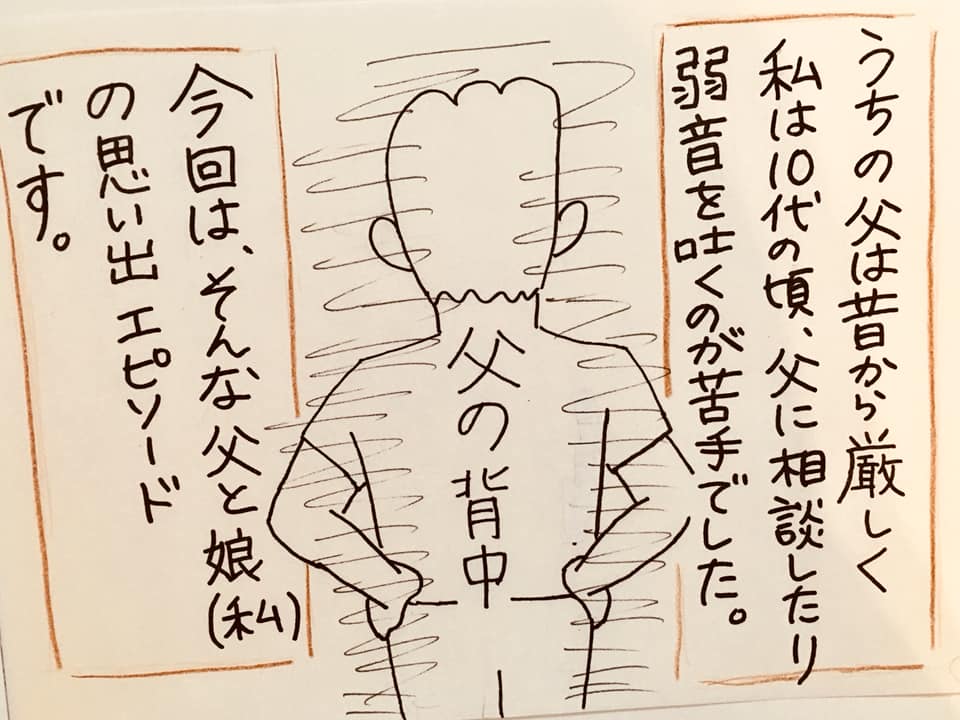 うちの父は昔から厳しく
私は10代の頃、父に相談したり
弱音を吐くのが苦手でした。
父の背中
今回は、そんな父と娘(私)
の思い出エピソード
です。